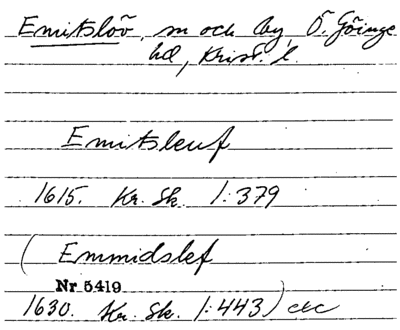 Emitslöv, m och by, Ö. Göinge
hd, Krist. l.
Emitsleuf
1615. Kr. Sk. 1:379
(Emmidslef
Nr 5419
1630. Kr. Sk. 1:443) etc